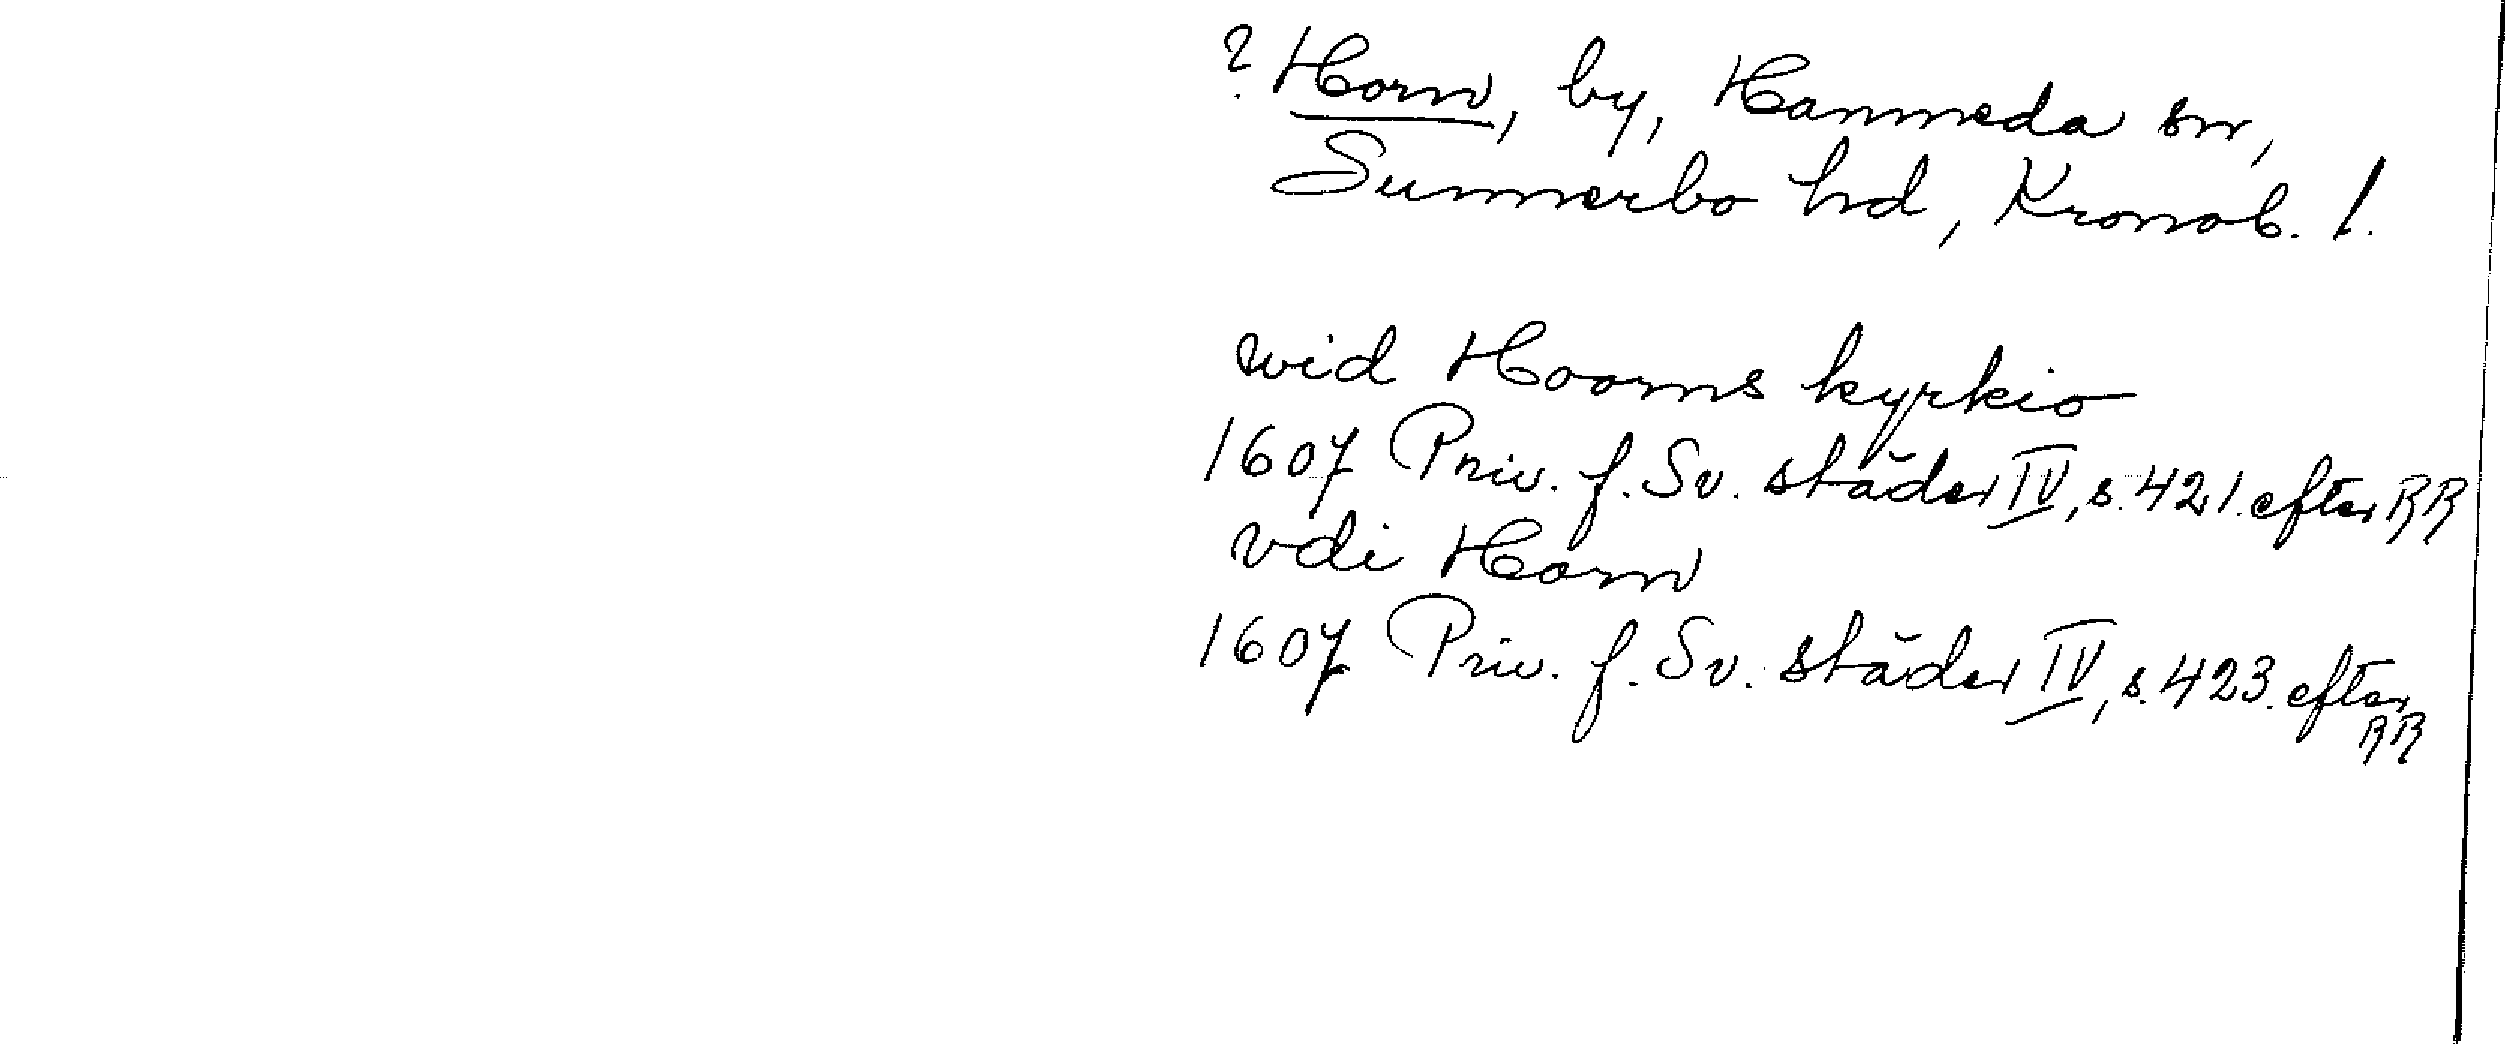 ? Horn, by, Hamneda sn,
Sunnerbo hd, Kronob. l.
wid Hoorns kyrkio
1607 Priv. f. Sv. städer IV, s. 421. efter RR
vdi Horn
1607 Priv. f. Sv. städer IV, s. 423. efter
RR